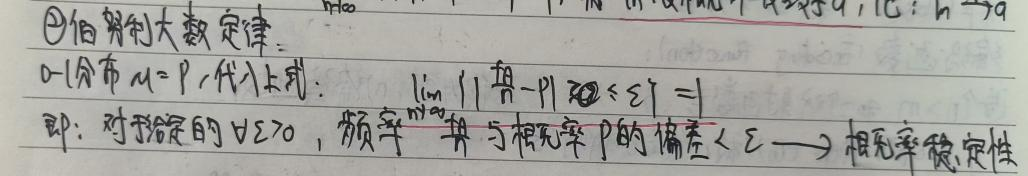 ②伯努利大数定律:
0-1分布 μ=P,代入上式: lim n→∞ {|fA/n - P| < ε} = 1
即: 对于给定的∀ε>0, 频率 fA/n 与概率P的偏差 < ε → 概率稳定性